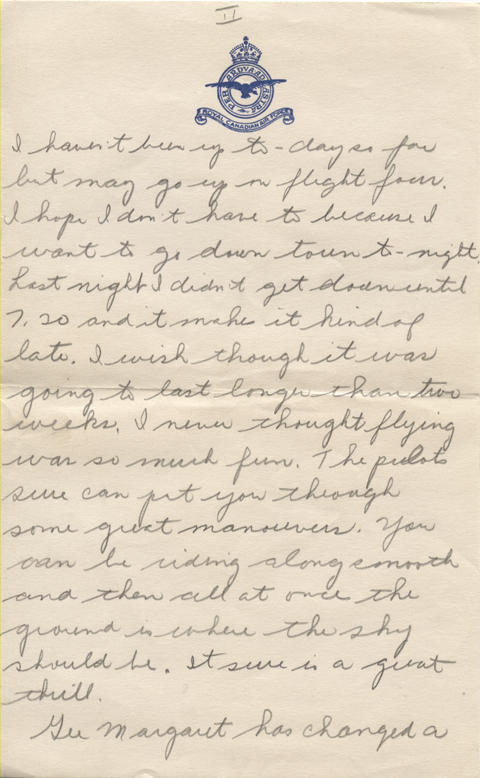 II
PER ARDVA AD ASTRA
ROYAL CANADIAN AIR FORCE
I haven't been up to-day so far
but may go up on flight four.
I hope I don't have to because I
want to go down town to-night.
Last night I didn't get down until
7.20 and it makes it kind of
late. I wish though it was
going to last longer than two
weeks. I never thought flying
was so much fun. The pilots
sure can put you through
some great manouvers. You
can be riding along smooth
and then all at once the
ground is where the sky
should be. It sure is a great
thrill.
Gee Margaret has changed a